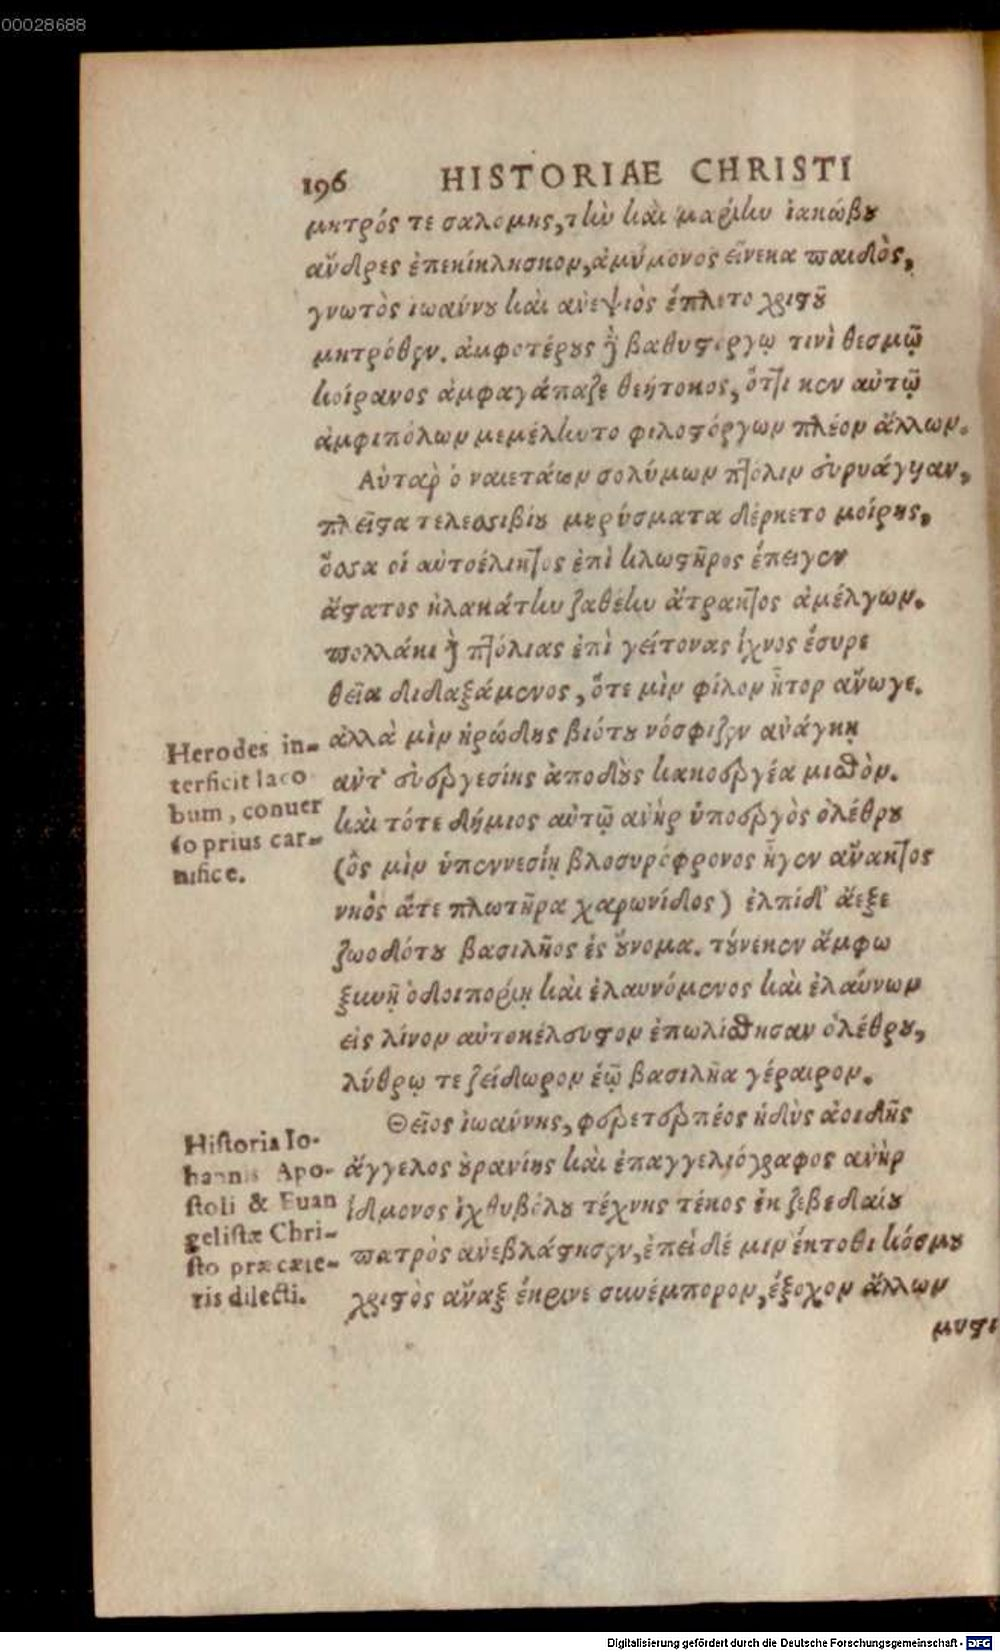 00028688
196 HISTORIAE CHRISTI
μητρός τε σαλομης, τὴν καὶ μαρίην ἰακώβου
ἄνδρες ἐπεκίκλησκον, ἀμύμονος εἵνεκα παιδὸς,
γνωτὸς ἰωάννου καὶ ἀνεψιὸς ἔπλετο χριστοῦ
μητρόθεν. ἀμφοτέρους δὲ βαθυστόργῳ τινὶ θεσμῷ
κοίρανος ἀμφαγάπαζε θεήτοκος, ὅττι κεν αὐτῷ
ἀμφιπόλων μεμέληντο φιλοστόργων πλέον ἄλλων.
Αὐτὰρ ὁ ναιετάων σολύμων πτόλιν εὐρυάγυιαν,
πλεῖστα τελεσσιβίου μερύσματα δέρκετο μοίρης,
ὅσσα οἱ αὐτοέλικτος ἐπὶ κλωστῆρος ἔπειγεν
ἄστατος ἠλακάτην ζαθέην ἄτρακτος ἀμέλγων.
πολλάκι δὲ πτόλιας ἐπὶ γείτονας ἴχνος ἔσυρε
θεῖα διδαξάμενος, ὅτε μὶν φίλον ἦτορ ἄνωγε.
ἀλλὰ μὶν ἡρώδης βιότου νόσφιζεν ἀνάγκῃ
αὐτ' εὐεργεσίης ἀποδοὺς κακοεργέα μισθὸν.
καὶ τότε δήμιος αὐτῷ ἀνὴρ ὑποεργὸς ὀλέθρου
(ὃς μὶν ὑπεννεσίῃ βλοσυρόφρονος ἦγεν ἄνακτος
νηὸς ἅτε πλωτῆρα χαρωνίδος) ἐλπίδ' ἄεξε
ζωοδότου βασιλῆος ἐς οὔνομα. τούνεκεν ἄμφω
ξυνῇ ὁδοιπορίῃ καὶ ἐλαυνόμενος καὶ ἐλαύνων
εἰς λίνον αὐτοκέλευστον ἐπωλίσθησαν ὀλέθρου,
λύθρῳ τε ζείδωρον ἑῷ βασιλῆα γέραιρον.
Θεῖος ἰωάννης, φερετερπέος ἡδὺς ἀοιδῆς
ἄγγελος οὐρανίης καὶ ἐπαγγελιόγραφος ἀνὴρ
ἴδμονος ἰχθυβόλου τέχνης τέκος ἐκ ζεβεδαίου
πατρὸς ἀνεβλάστησεν, ἐπεὶ δέ μιν ἔκτοθι κόσμου
χριστὸς ἄναξ ἔκρινε συνέμπορον, ἔξοχον ἄλλων
μυστι
Herodes in-
terficit Iaco
bum, conuer
so prius car-
nifice.
Historia Io-
hannis Apo-
stoli & Euan
gelistæ Chri-
sto præ cæte-
ris dilecti.
Digitalisierung gefördert durch die Deutsche Forschungsgemeinschaft - DFG